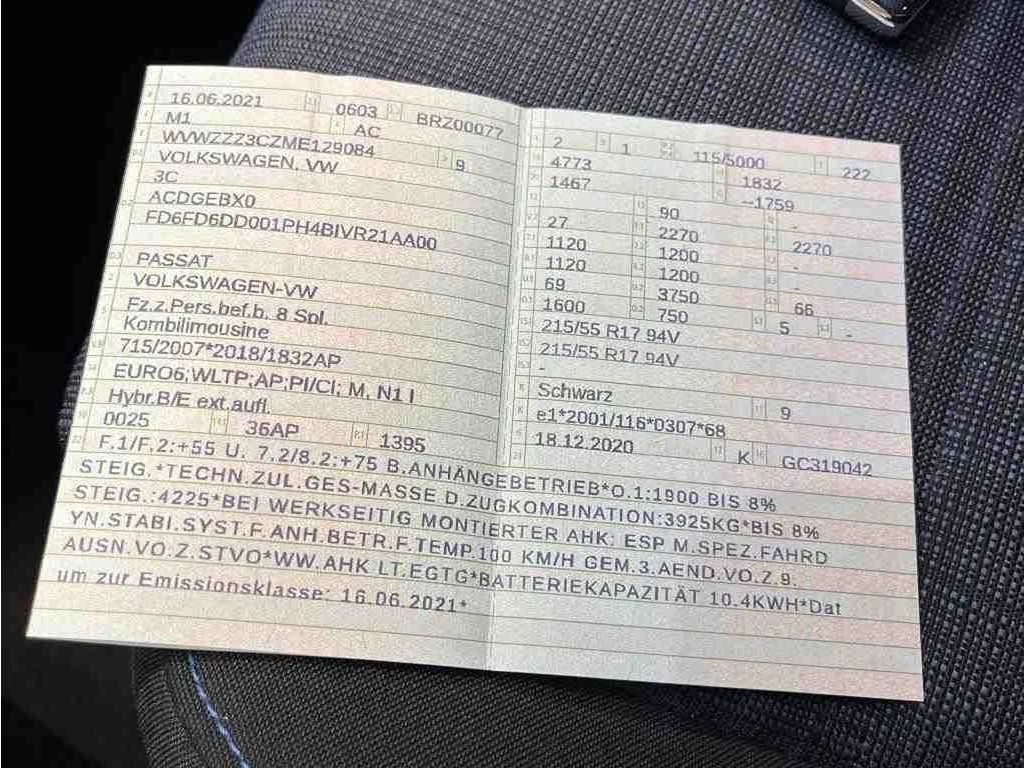 16.06.2021 0603 BRZ00077
M1 AC
WVWZZZ3CZME129084 9
VOLKSWAGEN, VW
3C
ACDGEBX0
FD6FD6DD001PH4BIVR21AA00
PASSAT
VOLKSWAGEN-VW
Fz.z.Pers.bef.b. 8 Spl.
Kombilimousine
715/2007*2018/1832AP
EURO6;WLTP;AP;PI/CI; M, N1 I
Hybr.B/E ext.aufl.
0025 36AP 1395
2 1 115/5000 222
4773 1832
1467 --1759
90 -
27 2270 2270
1120 1200 -
1120 1200 -
69 3750 66
1600 750 5 -
215/55 R17 94V
215/55 R17 94V
-
Schwarz 9
e1*2001/116*0307*68
18.12.2020 K GC319042
F.1/F.2:+55 U. 7.2/8.2:+75 B.ANHÄNGEBETRIEB*O.1:1900 BIS 8%
STEIG.*TECHN.ZUL.GES-MASSE D.ZUGKOMBINATION:3925KG*BIS 8%
STEIG.:4225*BEI WERKSEITIG MONTIERTER AHK: ESP M.SPEZ.FAHRD
YN.STABI.SYST.F.ANH.BETR.F.TEMP.100 KM/H GEM.3.AEND.VO.Z.9.
AUSN.VO.Z.STVO*WW.AHK LT.EGTG*BATTERIEKAPAZITÄT 10.4KWH*Dat
um zur Emissionsklasse: 16.06.2021*